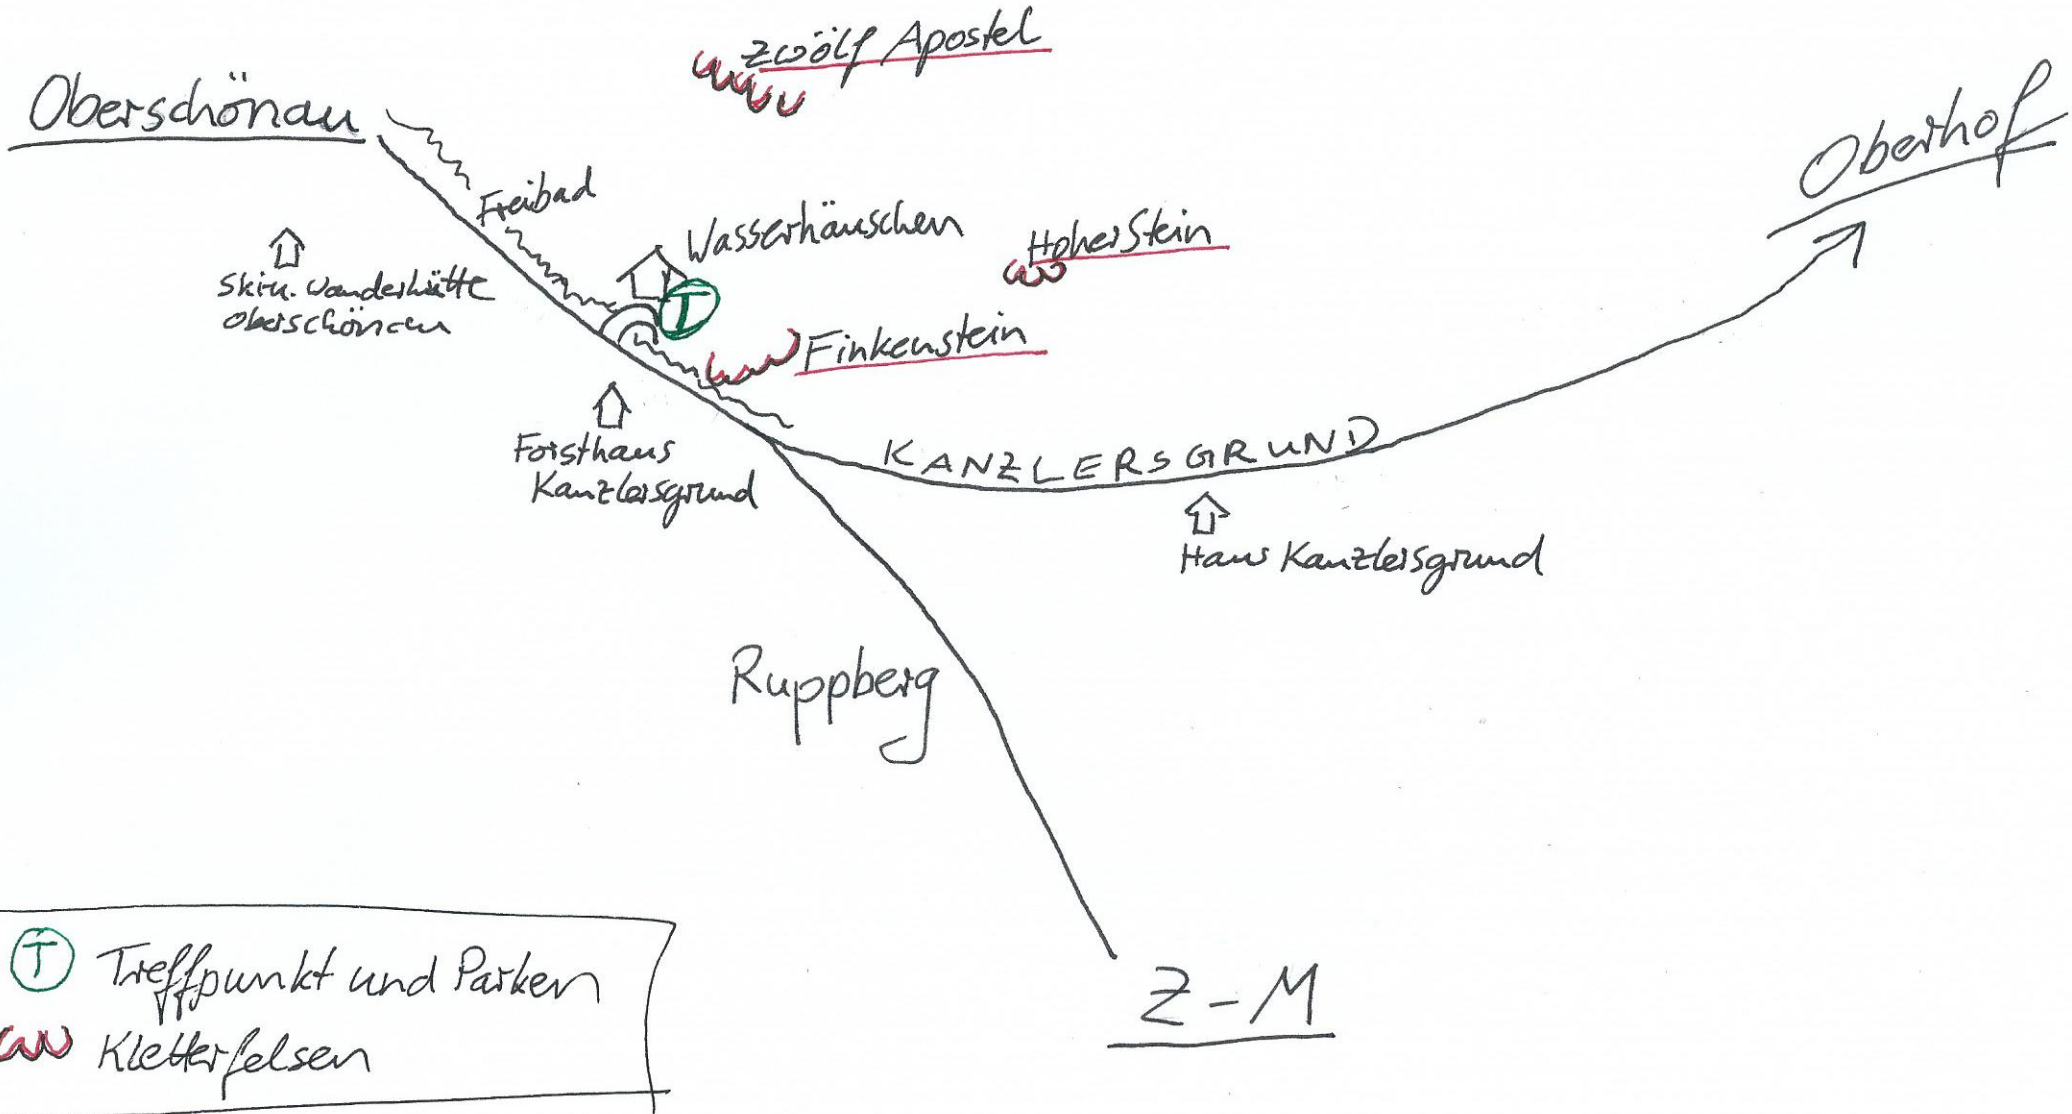 Zwölf Apostel
Oberschönau
Oberhof
Freibad
Wasserhäuschen
Hoher Stein
Ski u. Wanderhütte
Oberschönau
T
Finkenstein
Forsthaus
Kanzlersgrund
KANZLERSGRUND
Haus Kanzlersgrund
Ruppberg
Z-M
T Treffpunkt und Parken
Kletterfelsen